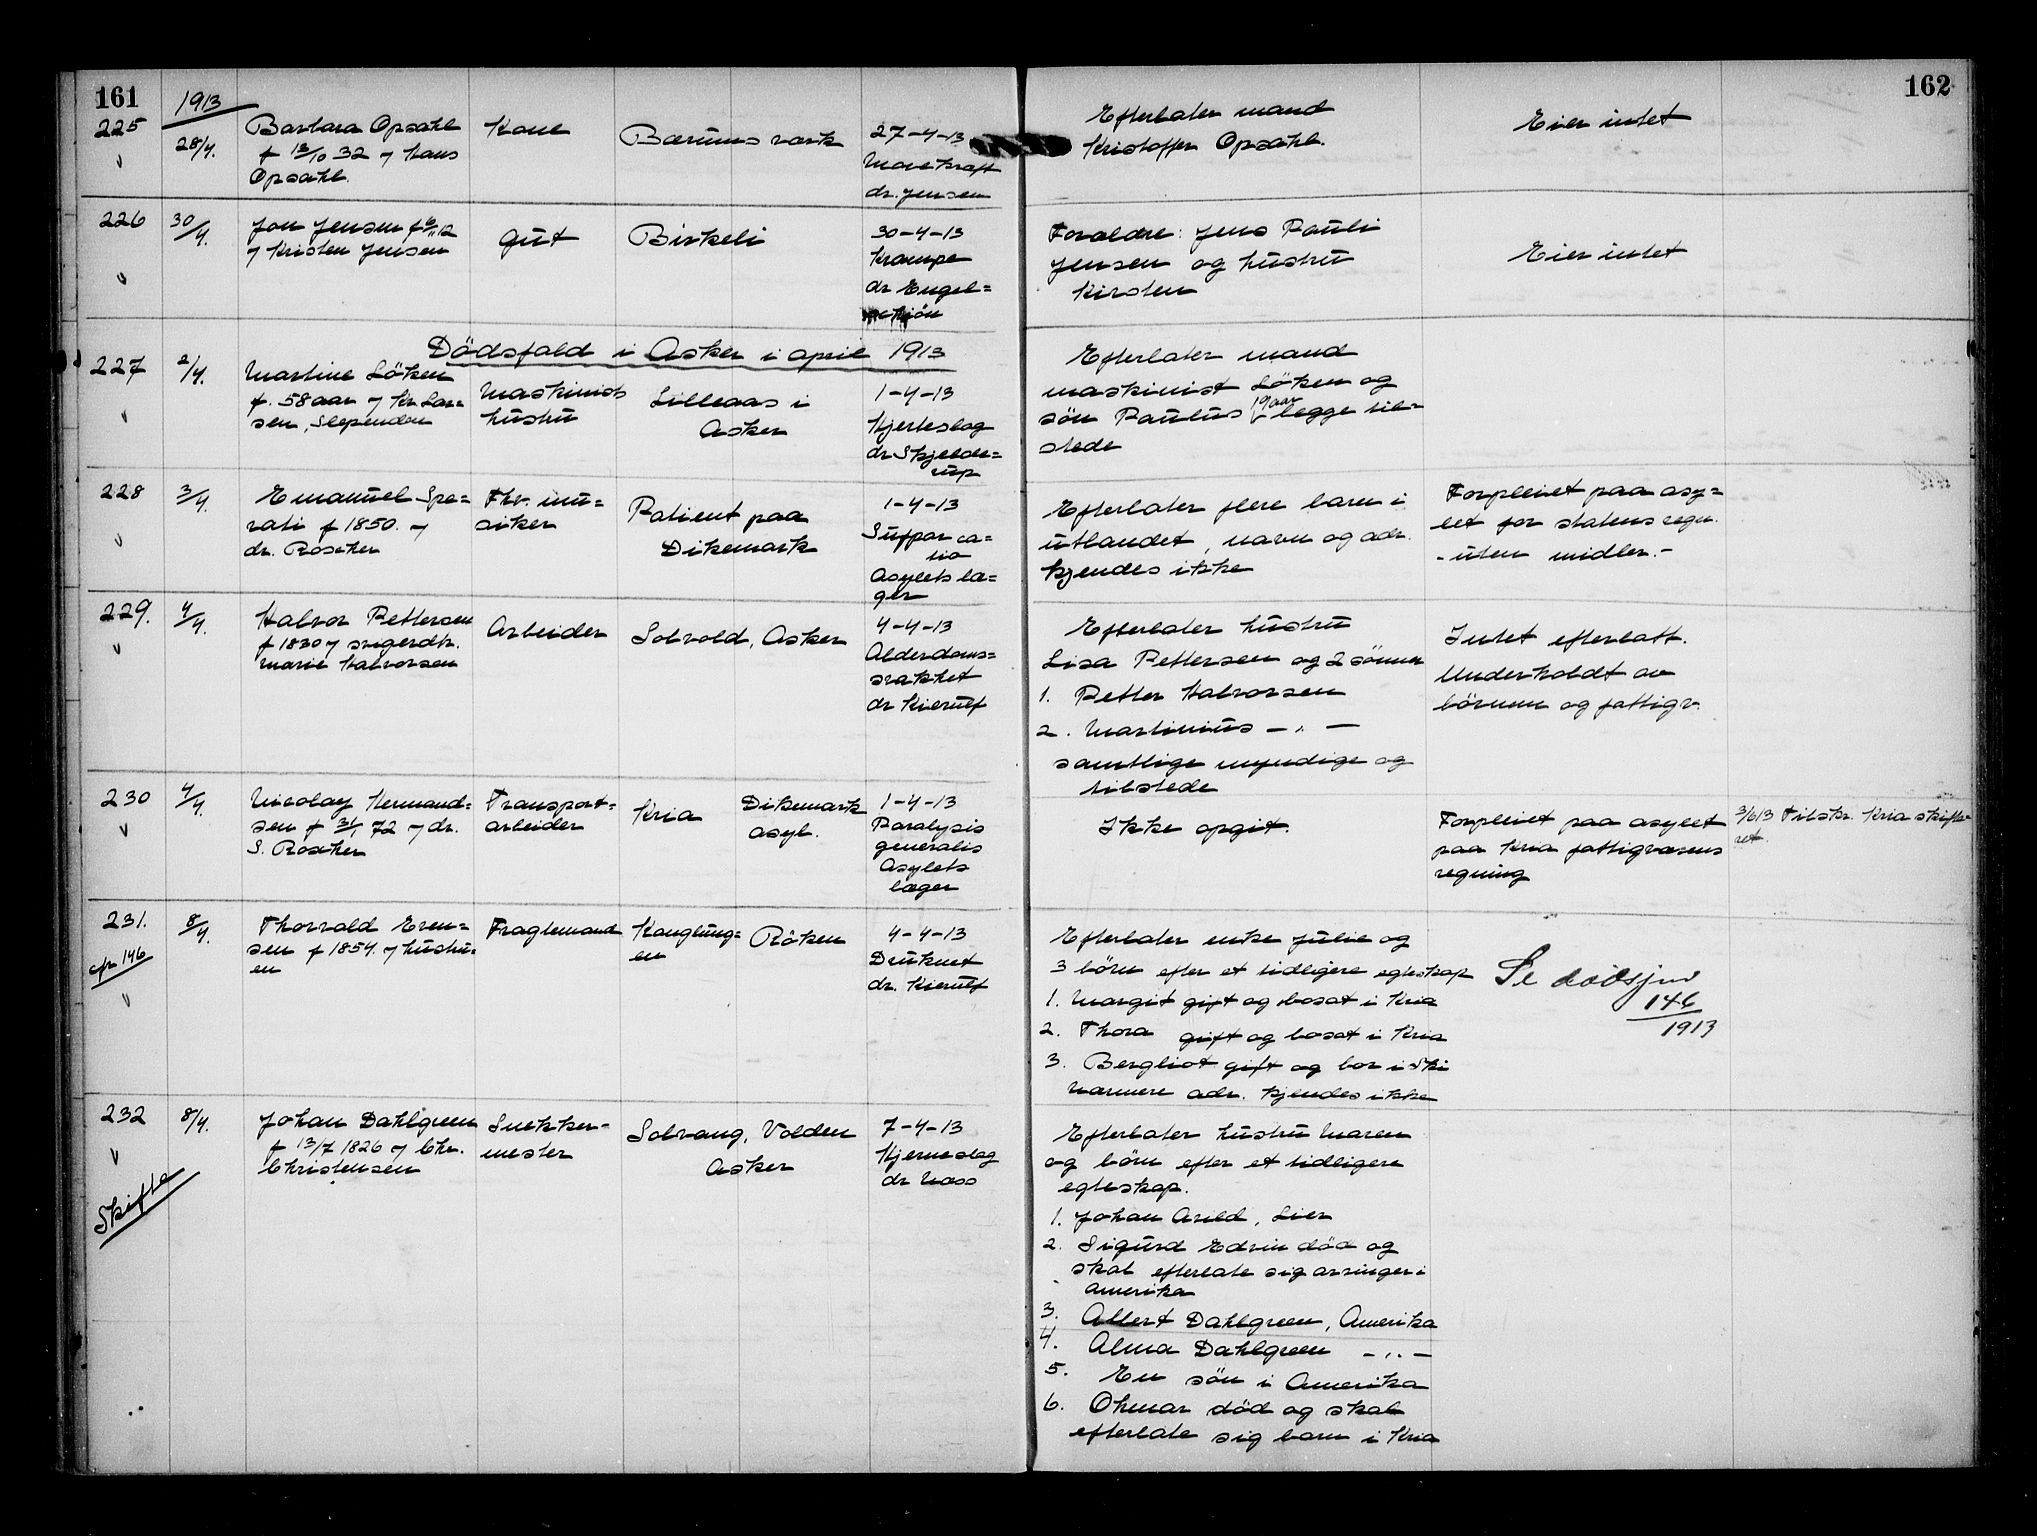 161
162
1913
225
28/4.
Barbara Opsahl
f 13/10 32 og Hans
Opsahl.
Kone
Bærums værk
27-4-13
Marekraft
dr. Jensen
Efterlater mand
Kristoffer Opsahl.
Eier intet
226
30/4.
Jon Jensen f 6/11 12
og Kristen Jensen
Gut
Birkeli
30-4-13
Krampe
dr Engel=
schiøn
Forældre: Jens Pauli
Jensen og hustru
Kirsten
Eier intet
Dödsfald i Asker i april 1913
227
2/4.
Martine Löken
f. 58 aar og Kr. Lar=
sen, Slependen
Maskinists
hustru
Lilleaas i
Asker
1-4-13
Hjerteslag
dr Skjelde=
rup
Efterlater mand
maskinist Löken og
sön Paulus 19 aar begge til=
stede
228
3/4.
Emanuel Spe=
rati f 1850. og
dr. Roscher
Fhv. mu=
siker
Patient paa
Dikemark
1-4-13
Suffoca=
tio
Asylets læ=
ger
Efterlater flere barn i
utlandet, navn og adr.
kjendes ikke
Forpleiet paa asy=
let for statens regn.
- uten midler. -
229.
4/4.
Halvor Pettersen
f 1830 og svigerdtr.
Marie Halvorsen
Arbeider
Solvold, Asker
4-4-13
Alderdoms=
svakhet
dr Kierulf
Efterlater hustru
Lisa Pettersen og 2 sönner
1. Petter Halvorsen
2. Martinius - " -
samtlige myndige og
tilstede
Intet efterlatt.
Underholdt av
börnene og fattigv.
230
4/4.
Nicolay Hermand=
sen f 31/1 72 og dr.
S. Roscher
Transport=
arbeider
Kria
Dikemark
asyl.
1-4-13
Paralysis
generalis
Asylets
læger
Ikke opgit.
Forpleiet paa asylet
paa Kria fattigvæsens
regning
3/6 13 Tilskr. Kria skifte=
ret.
231.
cfr 146
8/4.
Thorvald Even=
sen f 1854. og hustru=
en
Fragtemand
Kanglung=
en
Röken
4-4-13
Druknet
dr. Kierulf
Efterlater enke Julie og
3 börn efter et tidligere egteskap
1. Margit gift og bosat i Kria
2. Thora gift og bosat i Kria
3. Bergliot gift og bor i Ski
nærmere adr. kjendes ikke
Se dödsjrn
146
1913
232
8/4.
Skifte
Johan Dahlgreen
f 13/7 1826 og Chr.
Christensen
Snekker=
mester
Solvang, Volden
Asker
7-4-13
Hjerneslag
dr Næss
Efterlater hustru Maren
og börn efter et tidligere
egteskap.
1. Johan Arild, Lier
2. Sigurd Edvin död og
skal efterlate sig arvinger i
Amerika
3. Albert Dahlgreen, Amerika
4. Alma Dahlgreen - " -
5. En sön i Amerika
6. Othmar död og skal
efterlate sig barn i Kria